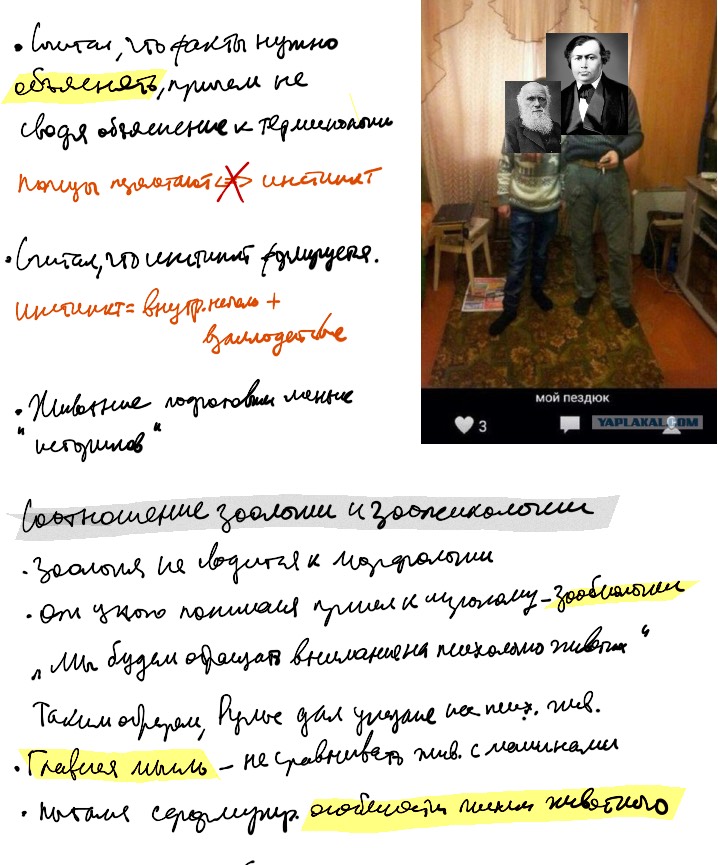 • Считал, что факты нужно
объяснять, причем не
сводя объяснение к терминологии
инстинкт
• Считал, что инстинкт формируется.
инстинкт = внутр. начало +
взаимодействие
• Животные
"историков"
мой пездюк
3
YAPLAKAL.COM
Соотношение зоологии и зоопсихологии
• Зоология не сводится к морфологии
• От узкого понимания пришел к широкому – зообиологии
„Мы будем обращать внимание на психологию животн"
Таким образом, Рулье дал указание на псих. жив.
• Главная мысль – не сравнивать жив. с машинами
• Пытался сформулир. особенности психики животного